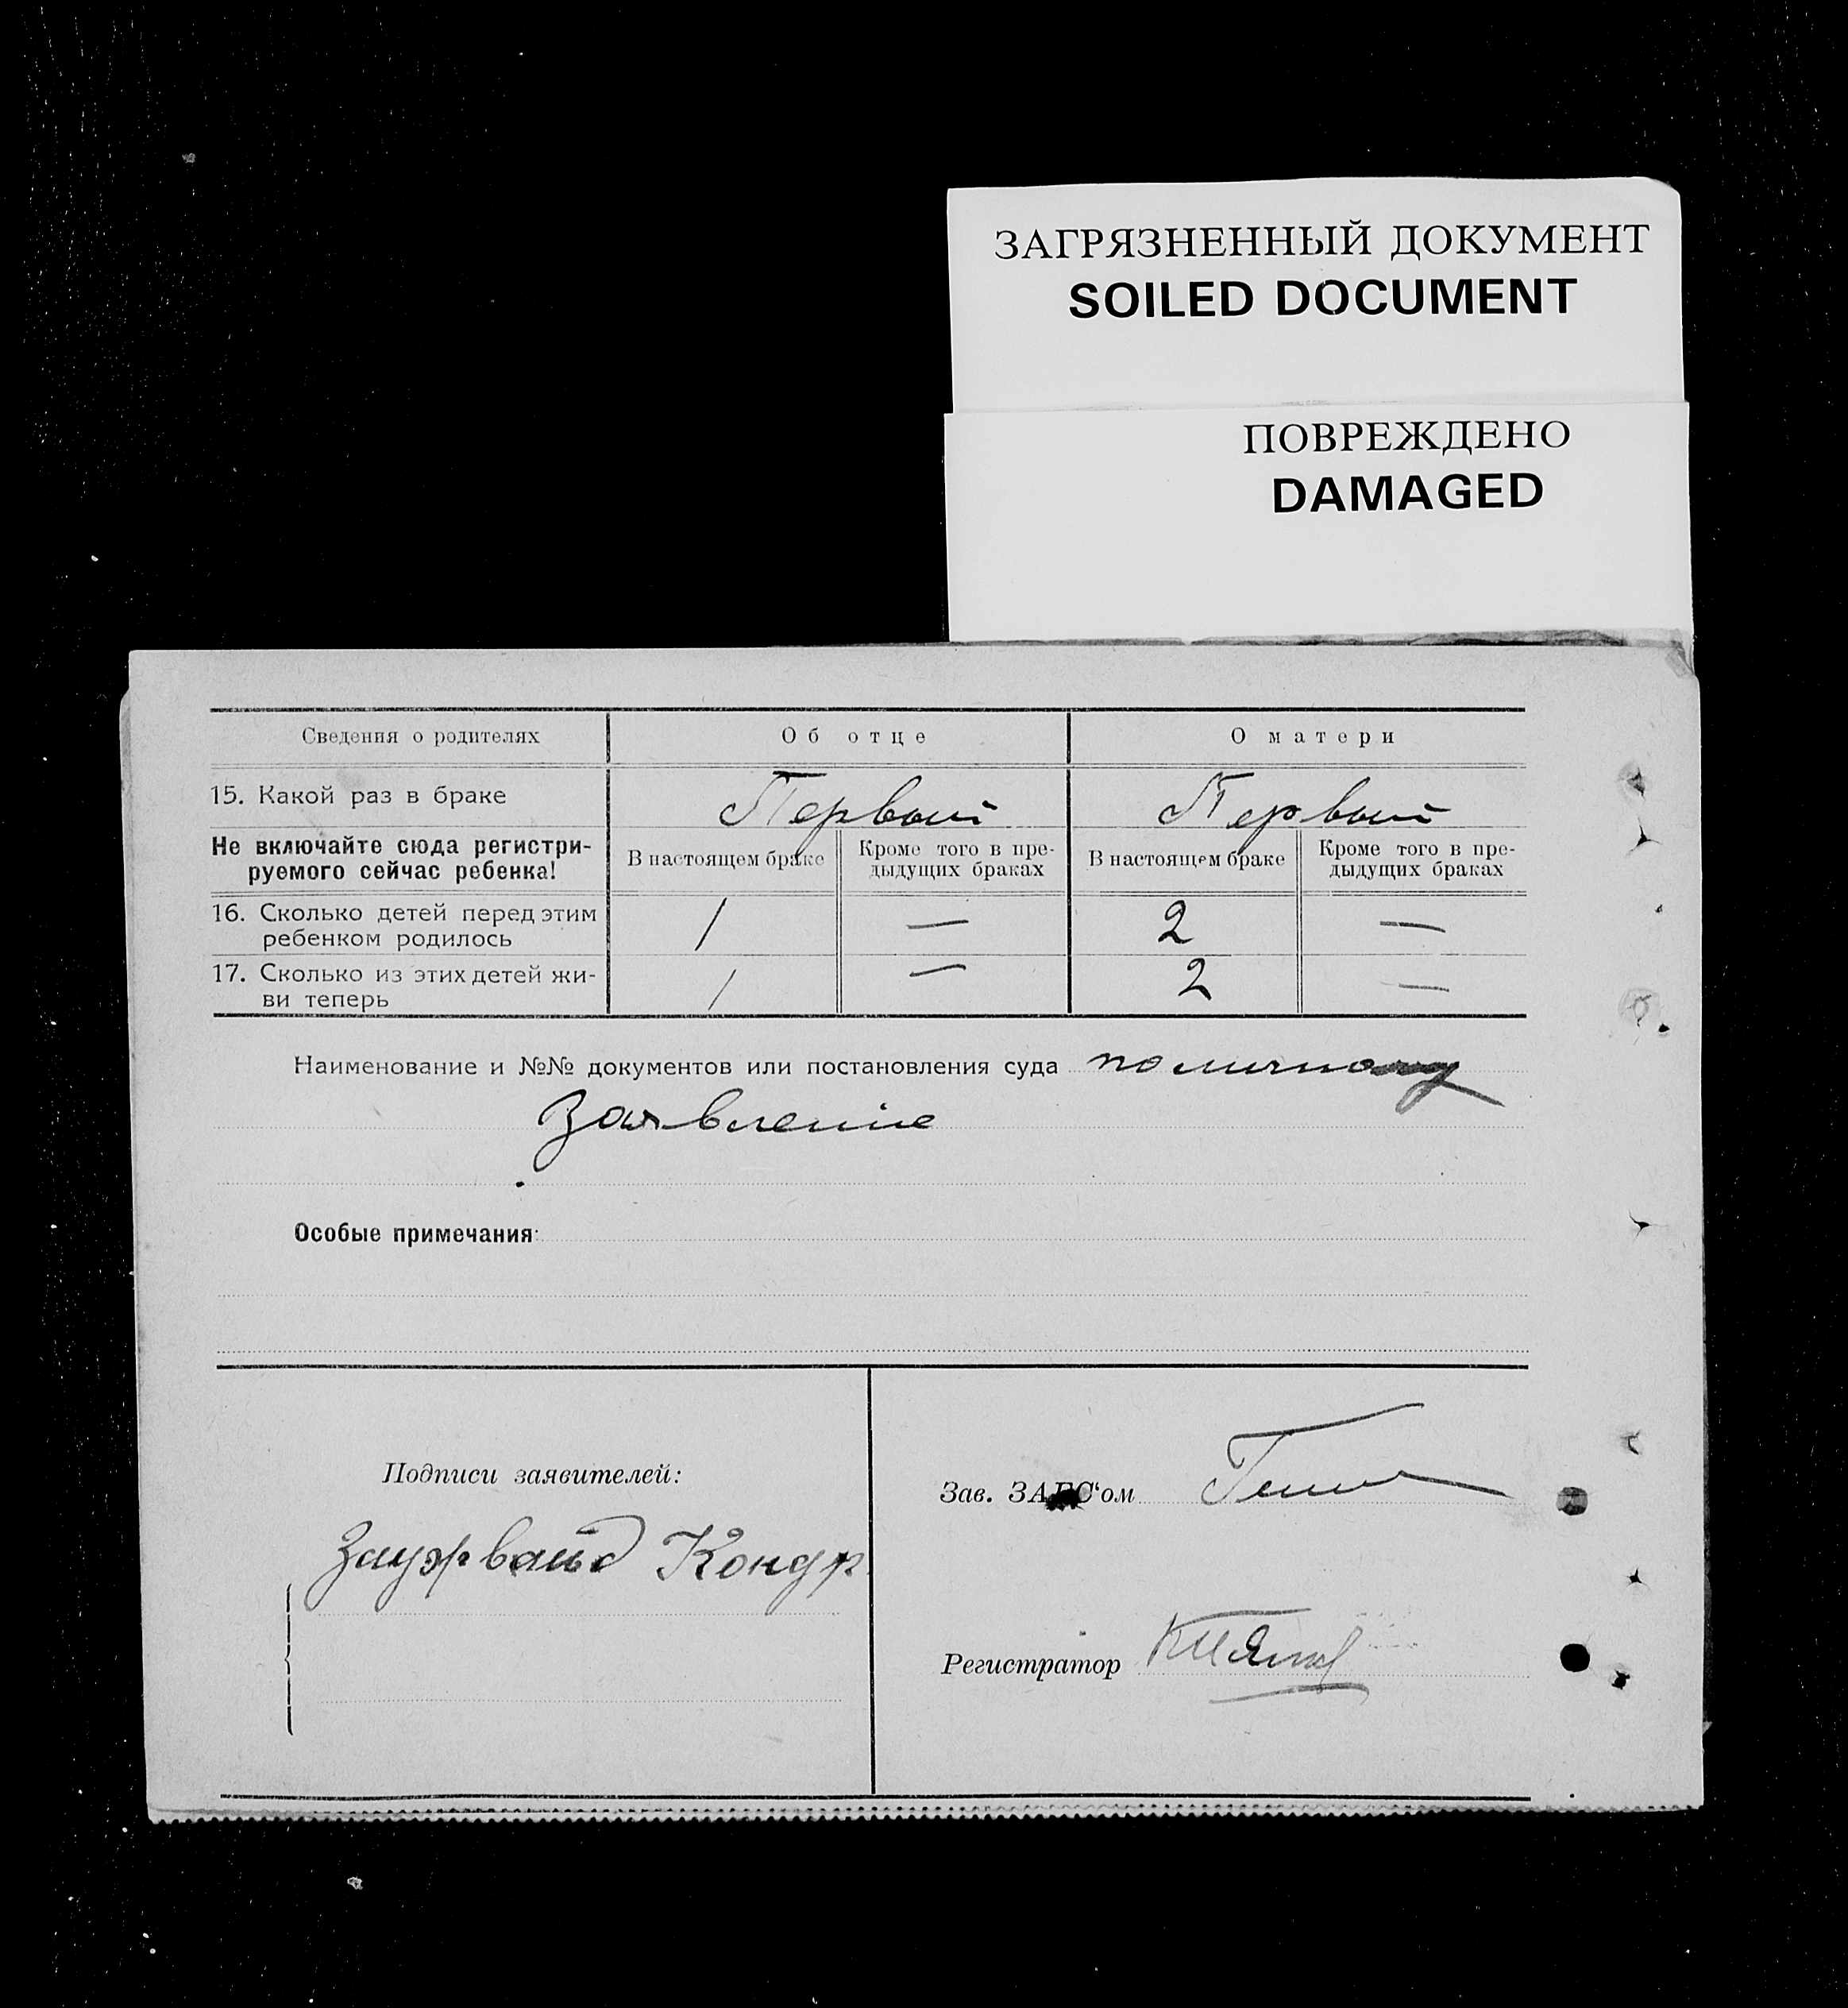 ЗАГРЯЗНЕННЫЙ ДОКУМЕНТ
SOILED DOCUMENT
ПОВРЕЖДЕНО
DAMAGED
Сведения о родителях Об отце О матери
15. Какой раз в браке Первый Первый
Не включайте сюда регистри-
руемого сейчас ребенка!
В настоящем браке
Кроме того в пре-
дыдущих браках
В настоящем браке
Кроме того в пре-
дыдущих браках
16. Сколько детей перед этим
ребенком родилось
1 — 2 —
17. Сколько из этих детей жи-
ви теперь
1 — 2 —
Наименование и №№ документов или постановления суда по личному
Заявление
Особые примечания:
Подписи заявителей:
Зауэрвайд Кондр
Зав. ЗАГС‘ом
Регистратор